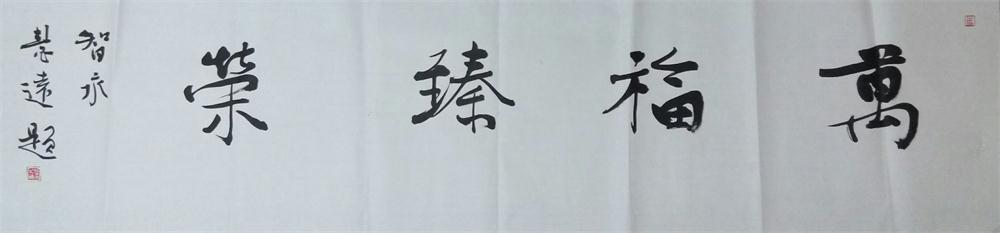 萬福臻榮
智永
慧遠題